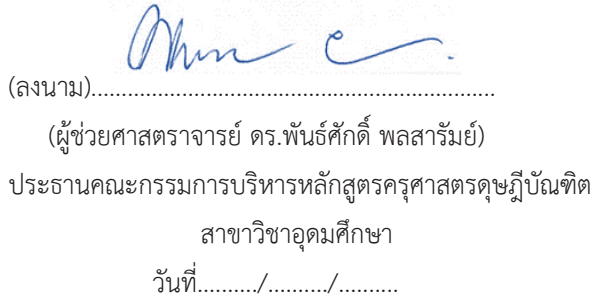 (ลงนาม)..................................................................
(ผู้ช่วยศาสตราจารย์ ดร.พันธ์ศักดิ์ พลสารัมย์)
ประธานคณะกรรมการบริหารหลักสูตรครุศาสตรดุษฎีบัณฑิต
สาขาวิชาอุดมศึกษา
วันที่........../........../..........